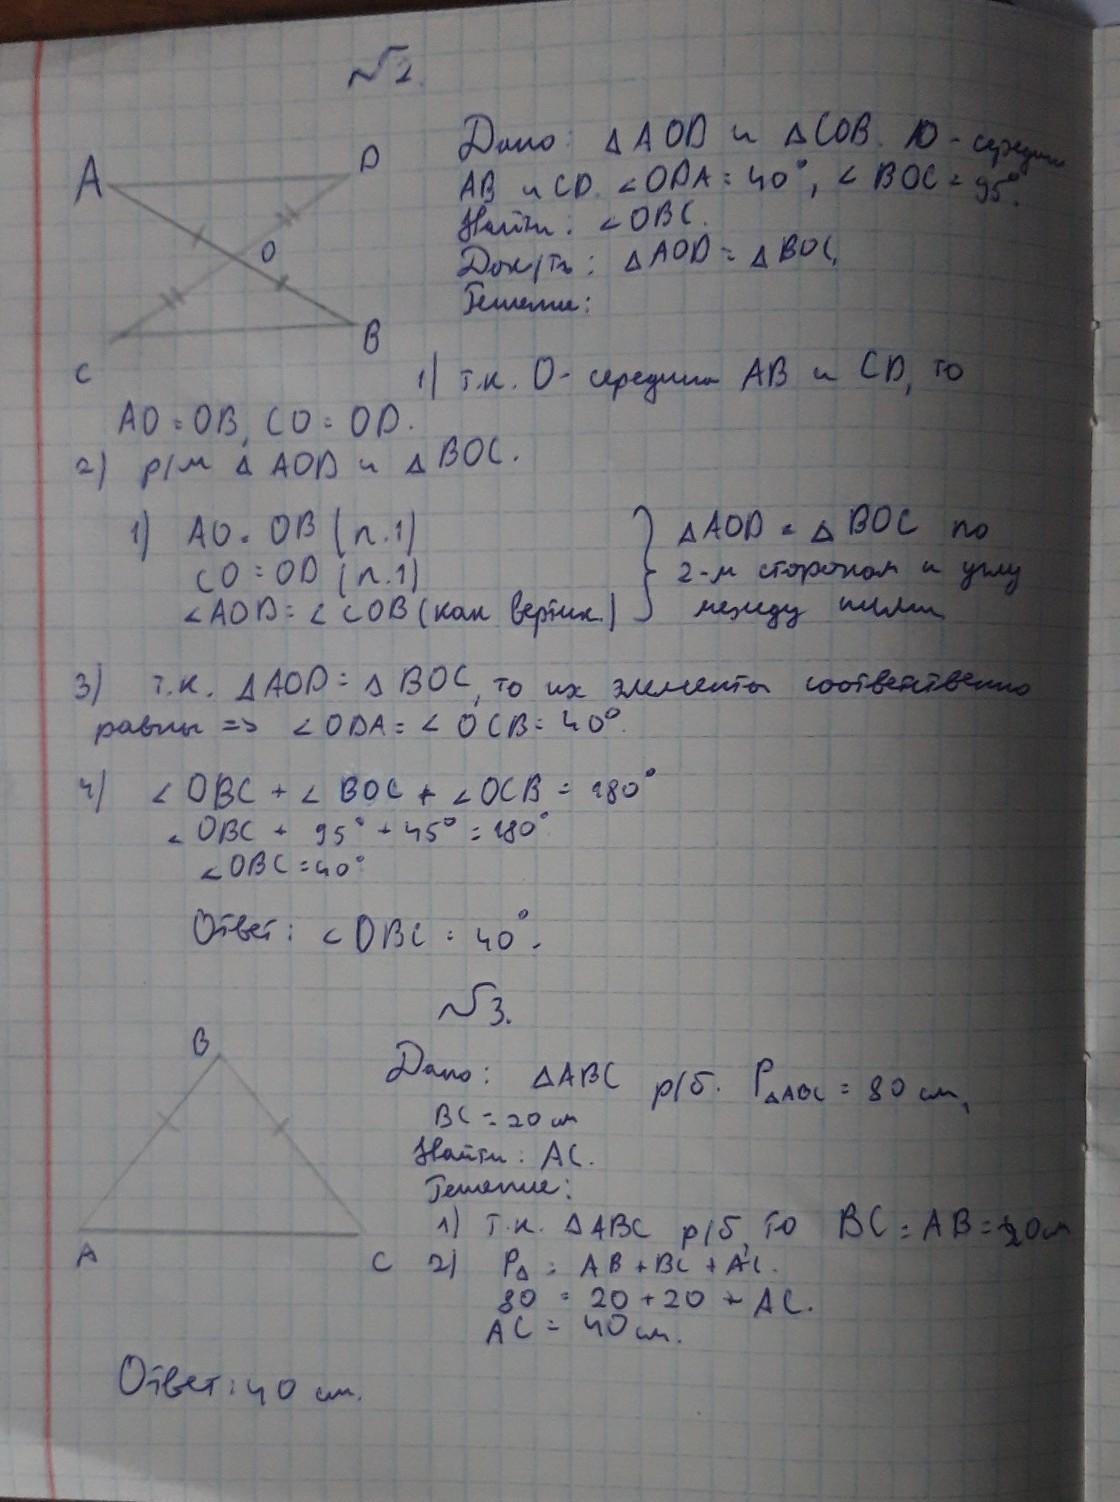 №2.
A
D
O
C
B
Дано: △AOD и △COB. O - середина
AB и CD. ∠ODA = 40°, ∠BOC = 95°.
Найти: ∠OBC.
Док/ть: △AOD = △BOC.
Решение:
1) т.к. O - середина AB и CD, то
AO = OB, CO = OD.
2) р/м △AOD и △BOC.
1) AO = OB (п.1)
CO = OD (п.1)
∠AOD = ∠COB (как вертик.)
△AOD = △BOC по
2-м сторонам и углу
между ними
3) т.к. △AOD = △BOC, то их элементы соответственно
равны => ∠ODA = ∠OCB = 40°.
4) ∠OBC + ∠BOC + ∠OCB = 180°
∠OBC + 95° + 45° = 180°
∠OBC = 40°
Ответ: ∠OBC = 40°.
№3.
B
A
C
Дано: △ABC р/б. P△ABC = 80 см,
BC = 20 см
Найти: AC.
Решение:
1) т.к. △ABC р/б, то BC = AB = 20 см
2) P△ = AB + BC + AC.
80 = 20 + 20 + AC.
AC = 40 см.
Ответ: 40 см.